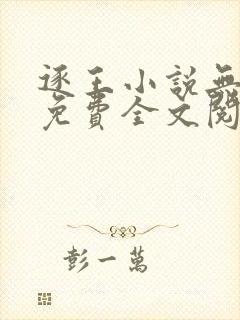 逐王小說無
免費全文閱
彭一萬